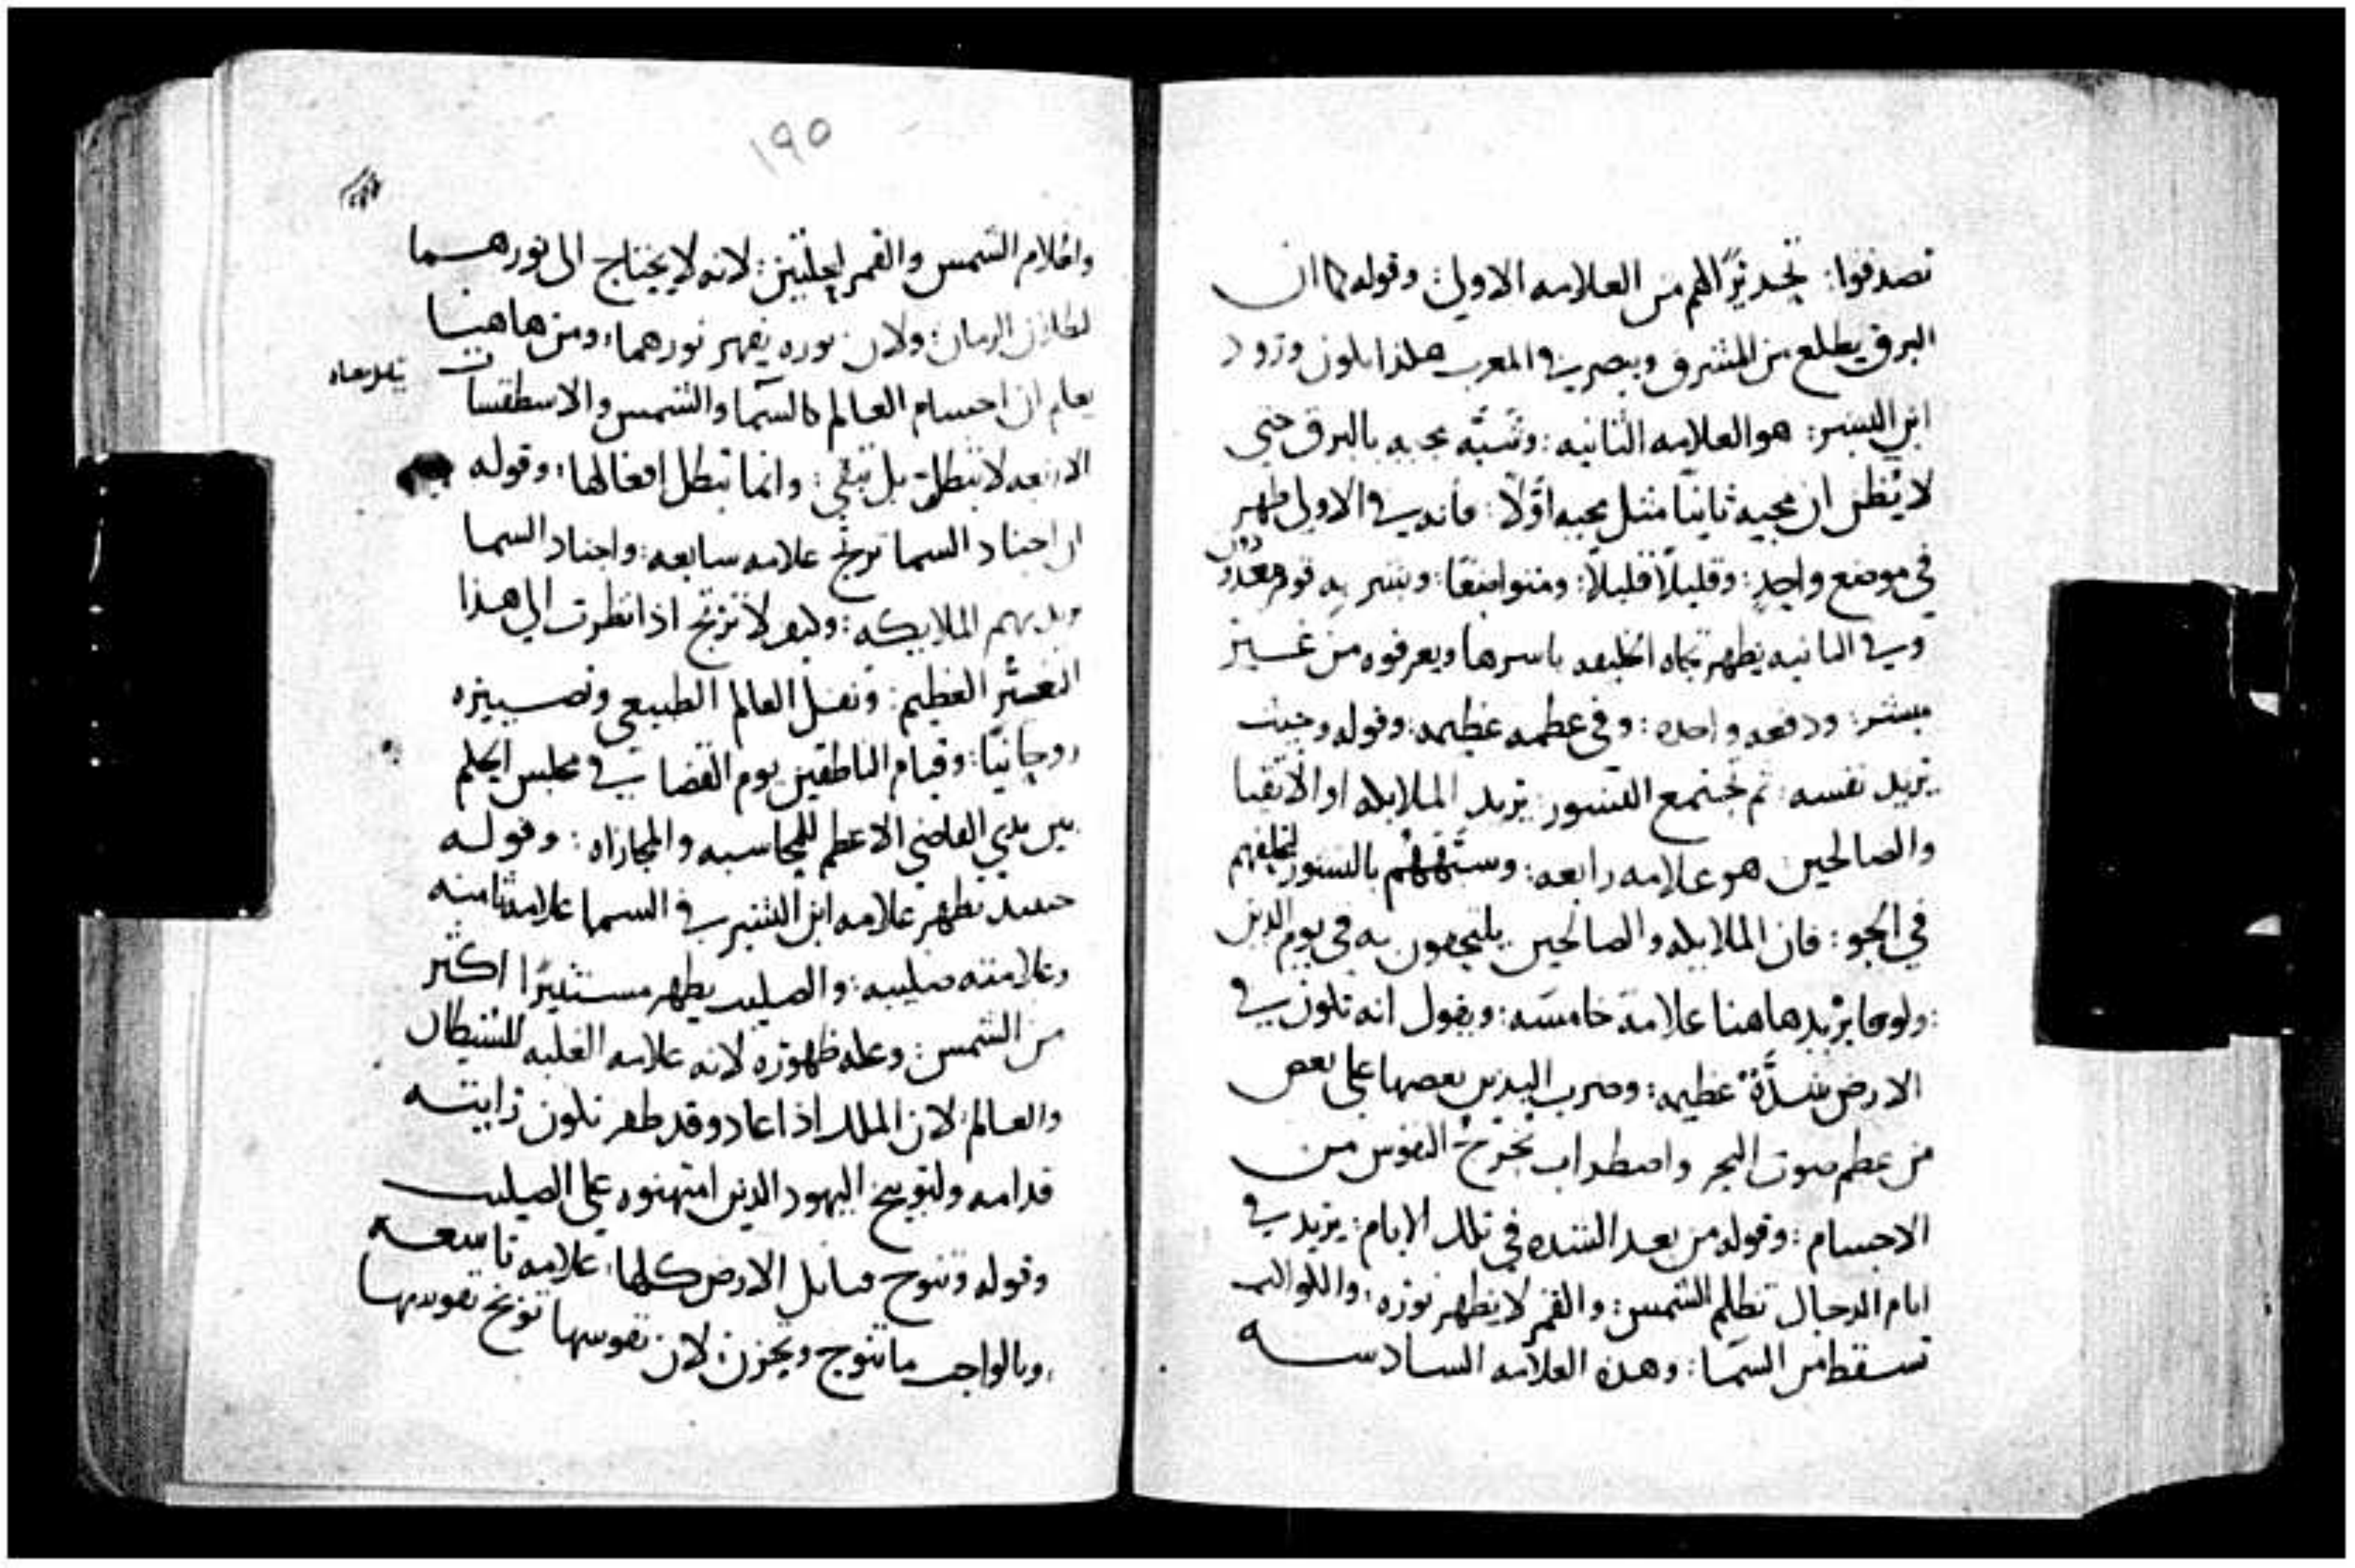 تصدقوا: تحديرًا لهم من العلامه الاولى: وقوله كما ان
البرق يطلع من المشرق ويبصر في المغرب هكذا يكون ورود
ابن البشر: هو العلامه الثانيه: وشبّه مجيه بالبرق حتى
لا يُظن ان مجيه ثانيًا مثل مجيه اوّلًا: فانه في الاولى ظهر
في موضع واحدٍ: وقليلًا قليلًا: ومتواضعًا: وبشر به قوم دون
وفي الثانيه يظهر تجاه الخليقه باسرها ويعرفوه من غير
مبشر: ودفعه واحده: وفي عظمه عظيمه: وقوله وحيث
يريد نفسه: ثم تجتمع النسور: يريد الملايكه او الاتقيا
والصالحين هو علامه رابعه: وشبههم بالنسور لتحليقهم
في الجو: فان الملايكه والصالحين يلتحقون به في يوم الدين
: ولوقا يزيد هاهنا علامة خامسه: ويقول انه تكون في
الارض شدَّة عظيمه: وضرب اليدين بعضها على بعض
من عظم صوت البحر واضطراب تخرج النفوس من
الاجسام: وقوله من بعد الشده في تلك الايام: يريد في
ايام الدجال تظلم الشمس: والقمر لا يظهر نوره: والكواكب
تسقط من السما: وهذه العلامه السادسه
١٩٥
واظلام الشمس والقمر لعلتين: لانه لا يحتاج الى نورهما
لطلان الزمان: ولان نوره يقهر نورهما: ومن هاهنا
يعلم ان اجسام العالم كالسما والشمس والاسطقسات
الاربعه لا تبطل بل تبقى: وانما تبطل افعالها: وقوله
ان اجناد السما ترتج علامه سابعه: واجناد السما
يريد بهم الملايكه: وكيف لا ترتج اذا نظرت الى هذا
التغيّر العظيم: ونقل العالم الطبيعي وتصييره
روحانيًا: وقيام الناطقين يوم القضا في مجلس الحكم
بين يدي القاضي الاعظم للمحاسبه والمجازاه: وقوله
حينيد تظهر علامه ابن البشر في السما علامه ثامنه
وعلامته صليبه: والصليب يظهر مستنيرًا اكثر
من الشمس: وعله ظهوره لانه علامه الغلبه للشيطان
والعالم: لان الملك اذا عاد وقد ظفر تكون رايته
قدامه ولتوبيخ اليهود الذين امتهنوه على الصليب
وقوله وتنوح قبايل الارض كلها: علامه تاسعه
: وبالواجب ما تنوح وتحزن: لان نفوسها توبخ نفوسها